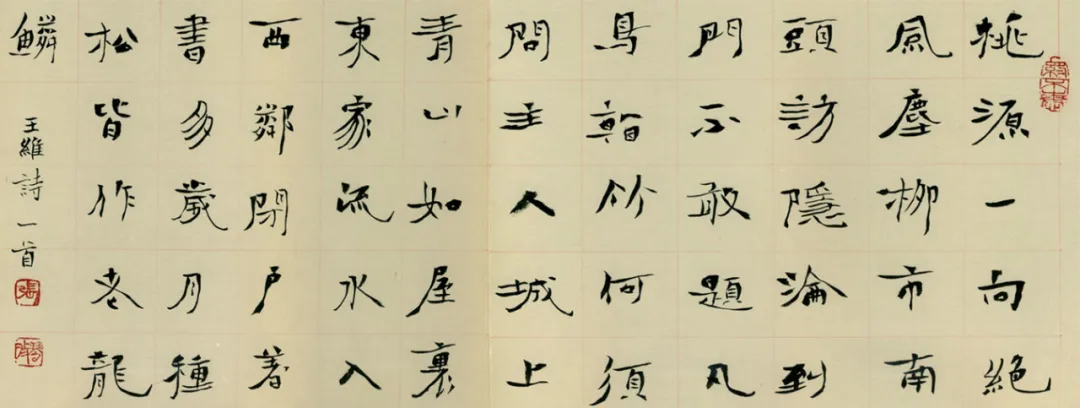 桃源一向絕
風塵柳市南
頭訪隱淪到
門不敢題凡
鳥看竹何須
問主人城上
青山如屋裏
東家流水入
西鄰閉戶著
書多歲月種
松皆作老龍
鱗
王維詩一首
張